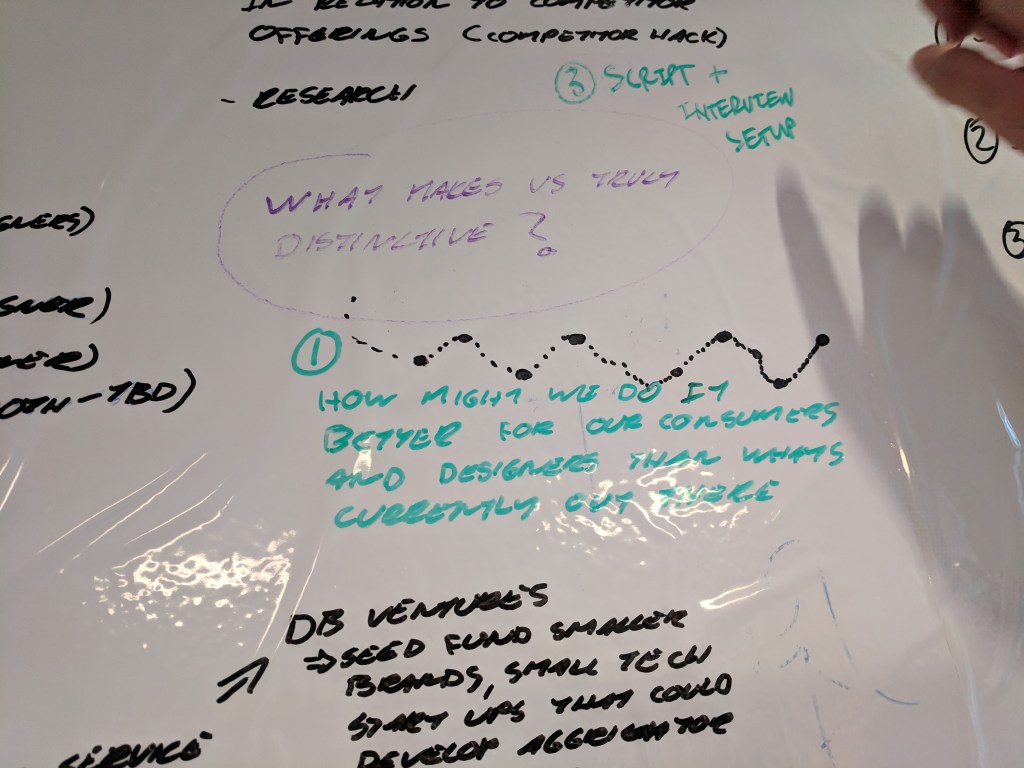 IN RELATION TO COMPETITOR
OFFERINGS (COMPETITOR HACK)
- RESEARCH
③ SCRIPT +
INTERVIEW
SETUP
②
③
WHAT MAKES US TRULY
DISTINCTIVE ?
①
HOW MIGHT WE DO IT
BETTER FOR OUR CONSUMERS
AND DESIGNERS THAN WHATS
CURRENTLY OUT THERE
- TBD)
DB VENTURES
⇒ SEED FUND SMALLER
BRANDS, SMALL TECH
START UPS THAT COULD
DEVELOP AGGREGATOR
SERVICE